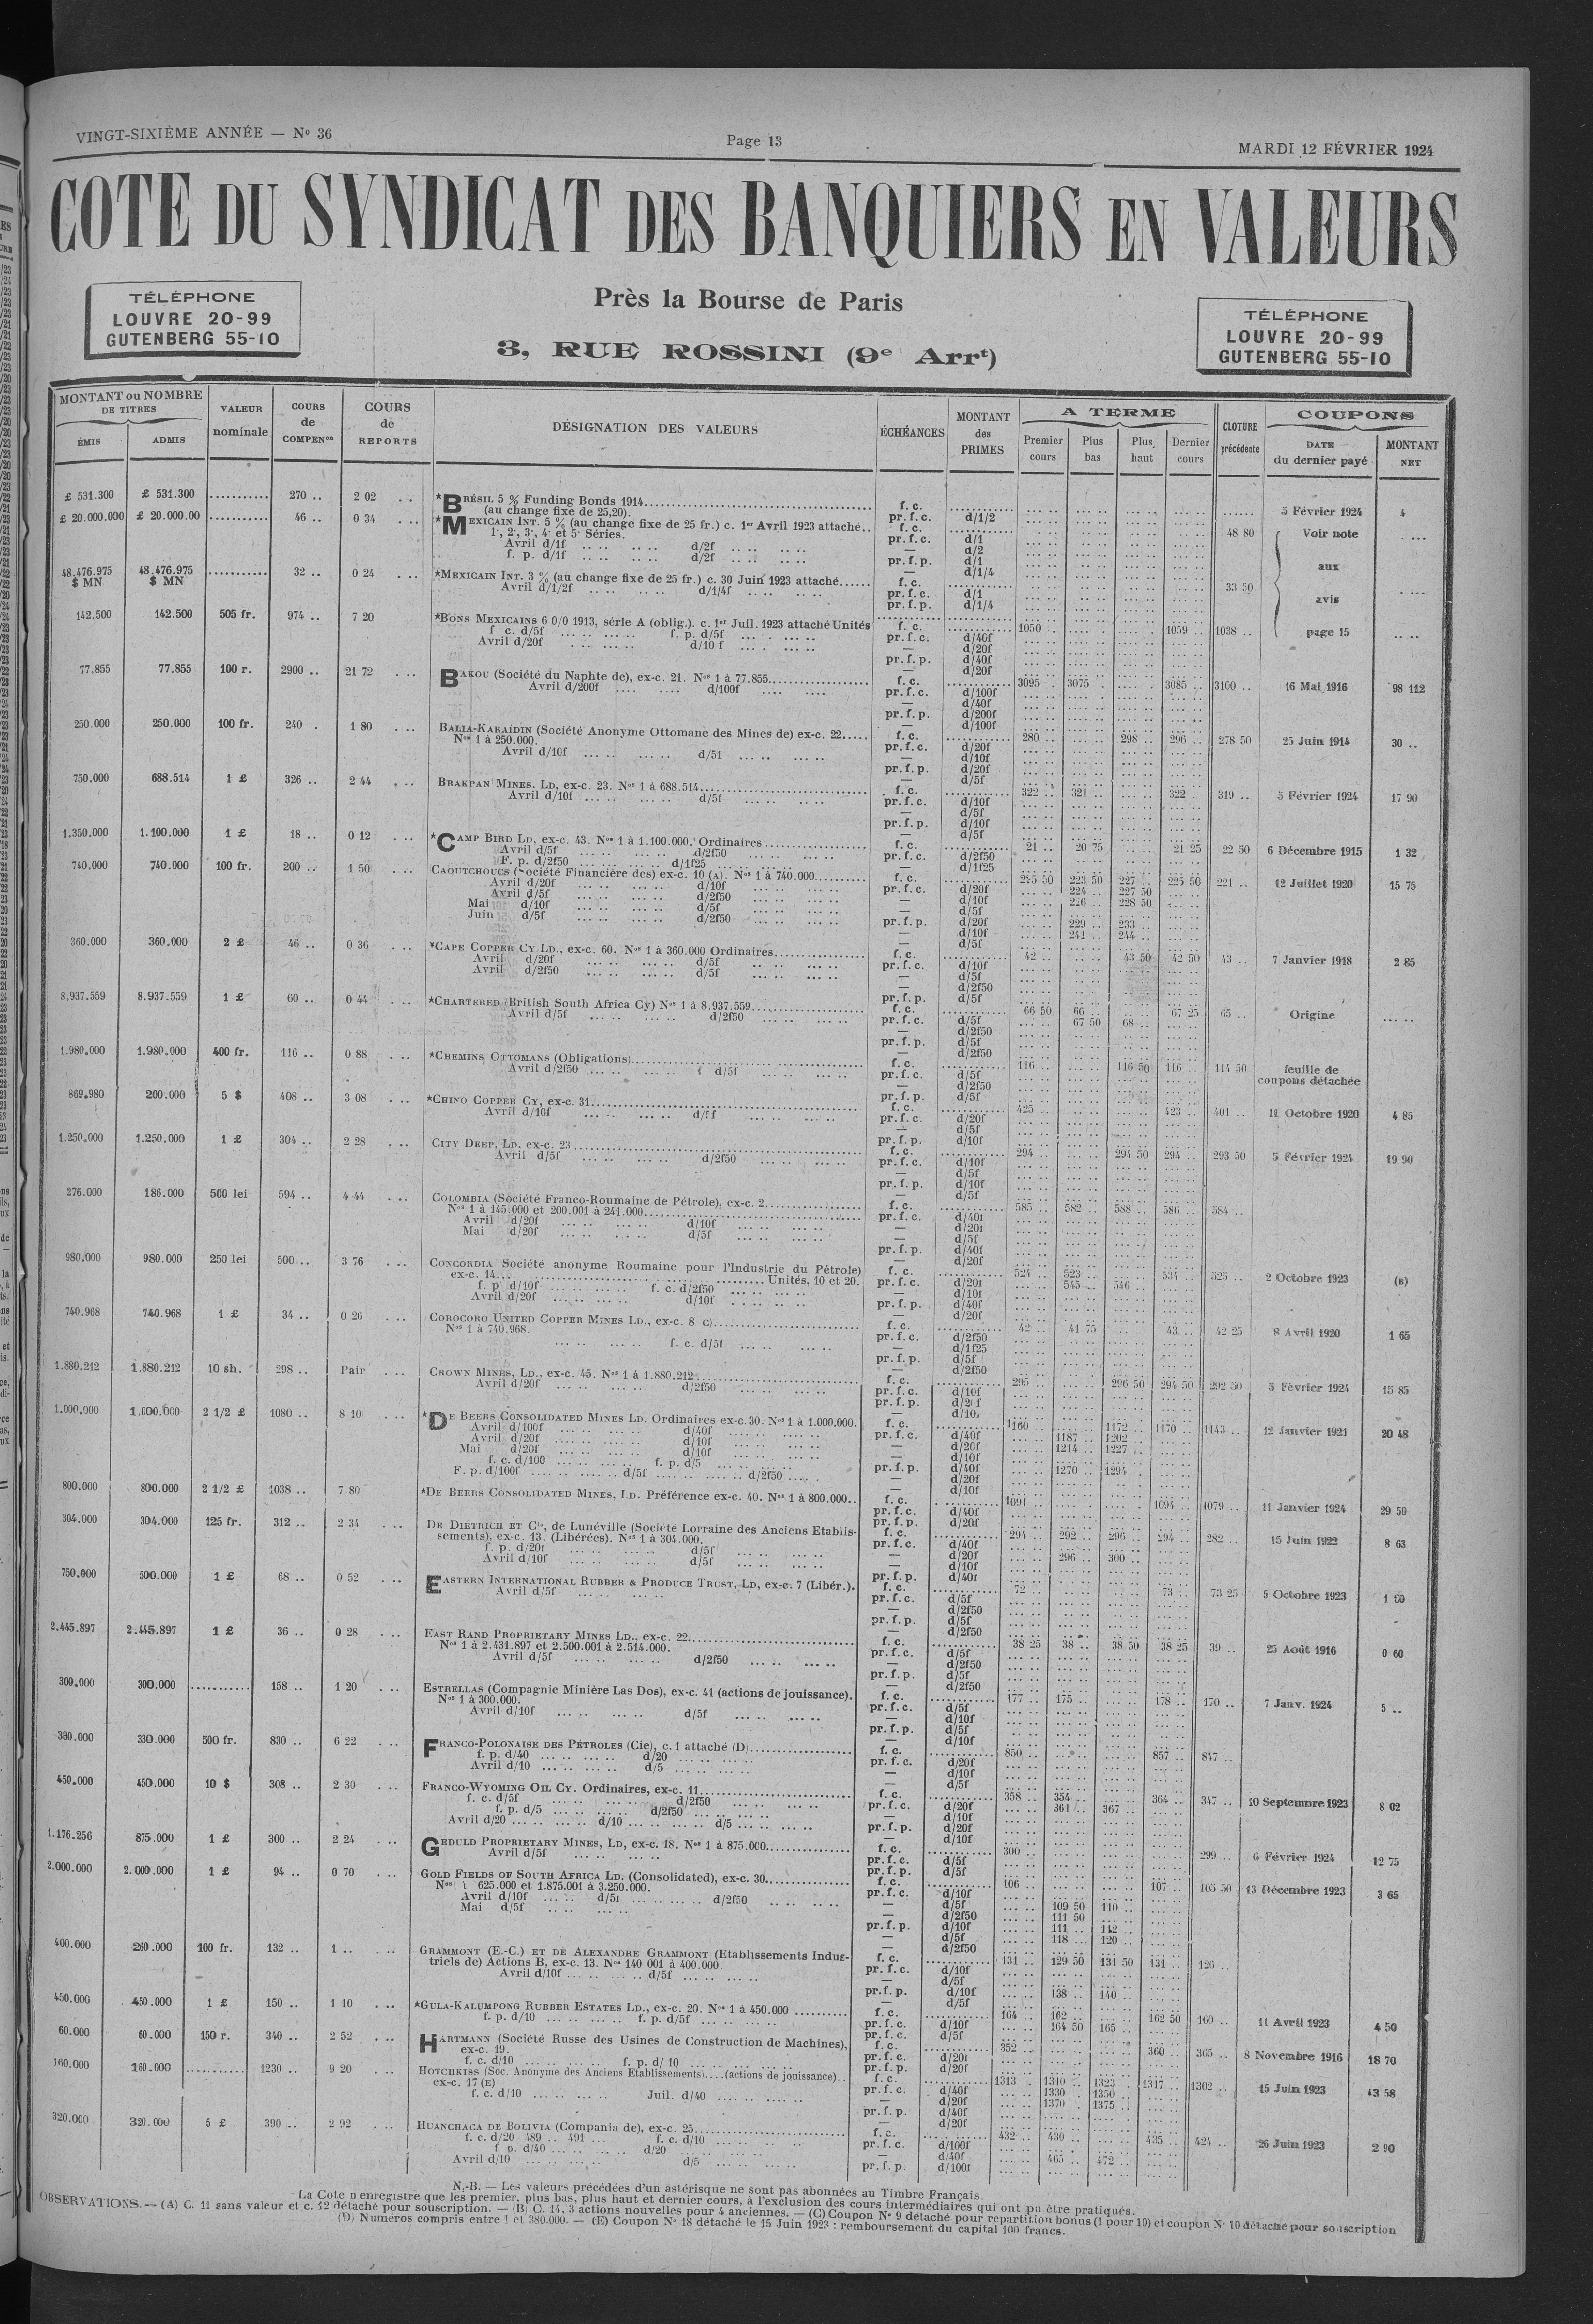 VINGT-SIXIÈME ANNÉE — No 36
Page 13
MARDI 12 FÉVRIER 1924
COTE DU SYNDICAT DES BANQUIERS EN VALEURS
TÉLÉPHONE
LOUVRE 20-99
GUTENBERG 55-10
Près la Bourse de Paris
3, RUE ROSSINI (9e Arrt)
TÉLÉPHONE
LOUVRE 20-99
GUTENBERG 55-10
MONTANT ou NOMBRE DE TITRES
ÉMIS ADMIS
VALEUR nominale
COURS de COMPENon
COURS de REPORTS
DÉSIGNATION DES VALEURS
ÉCHÉANCES
MONTANT des PRIMES
A TERME
Premier cours Plus bas Plus haut Dernier cours
CLOTURE précédente
COUPONS
DATE du dernier payé
MONTANT NET
£ 531.300 £ 531.300 .......... 270 .. 2 02 *BRÉSIL 5 % Funding Bonds 1914 f. c. 5 Février 1924 4
(au change fixe de 25,20). pr. f. c. d/1/2
£ 20.000.000 £ 20.000.00 .......... 46 .. 0 34 *MEXICAIN INT. 5 % (au change fixe de 25 fr.) c. 1er Avril 1923 attaché.. f. c. 48 80 Voir note
1·, 2·, 3·, 4· et 5· Séries. pr. f. c. d/1
Avril d/1f d/2f — d/2
f. p. d/1f d/2f pr. f. p. d/1
— d/1/4 aux
48.476.975 $ MN 48.476.975 $ MN .......... 32 .. 0 24 *MEXICAIN INT. 3 % (au change fixe de 25 fr.) c. 30 Juin 1923 attaché...... f. c. 33 50
Avril d/1/2f d/1/4f pr. f. c. d/1 avis
pr. f. p. d/1/4
142.500 142.500 505 fr. 974 .. 7 20 *BONS MEXICAINS 6 0/0 1913, série A (oblig.). c. 1er Juil. 1923 attaché Unités f. c. 1050 1059 1038 .. page 15
f c. d/5f f. p. d/5f pr. f. c. d/40f
Avril d/20f d/10 f — d/20f
pr. f. p. d/40f
— d/20f
77.855 77.855 100 r. 2900 .. 21 72 BAKOU (Société du Naphte de), ex-c. 21. Nos 1 à 77.855 f. c. 3095 3075 3085 3100 .. 16 Mai 1916 98 112
Avril d/200f d/100f pr. f. c. d/100f
— d/40f
pr. f. p. d/200f
— d/100f
250.000 250.000 100 fr. 240 . 1 80 BALIA-KARAÏDIN (Société Anonyme Ottomane des Mines de) ex-c. 22 f. c. 280 298 296 278 50 25 Juin 1914 30 ..
Nos 1 à 250.000. pr. f. c. d/20f
Avril d/10f d/51 — d/10f
pr. f. p. d/20f
— d/5f
750.000 688.514 1 £ 326 .. 2 44 BRAKPAN MINES. LD, ex-c. 23. Nos 1 à 688.514 f. c. 322 321 322 319 .. 5 Février 1924 17 90
Avril d/10f d/5f pr. f. c. d/10f
— d/5f
pr. f. p. d/10f
— d/5f
1.350.000 1.100.000 1 £ 18 .. 0 12 *CAMP BIRD LD, ex-c. 43. Nos 1 à 1.100.000. Ordinaires f. c. 21 20 75 21 25 22 50 6 Décembre 1915 1 32
Avril d/5f d/2f50 pr. f. c. d/2f50
F. p. d/2f50 d/1f25 — d/1f25
740.000 740.000 100 fr. 200 .. 1 50 CAOUTCHOUCS (Société Financière des) ex-c. 10 (A). Nos 1 à 740.000 f. c. 225 50 223 50 227 225 50 221 .. 12 Juillet 1920 15 75
Avril d/20f d/10f pr. f. c. d/20f 224 227 50
Avril d/5f d/2f50 — d/10f 226 228 50
Mai d/10f d/5f — d/5f
Juin d/5f d/2f50 pr. f. p. d/20f 229 233
— d/10f 241 244
— d/5f
360.000 360.000 2 £ 46 .. 0 36 *CAPE COPPER CY LD., ex-c. 60. Nos 1 à 360.000 Ordinaires f. c. 42 43 50 42 50 43 .. 7 Janvier 1918 2 85
Avril d/20f d/5f pr. f. c. d/10f
Avril d/2f50 d/5f — d/5f
— d/2f50
pr. f. p. d/5f
8.937.559 8.937.559 1 £ 60 .. 0 44 *CHARTERED (British South Africa Cy) Nos 1 à 8.937.559 f. c. 66 50 66 67 25 65 .. Origine
Avril d/5f d/2f50 pr. f. c. d/5f 67 50 68
— d/2f50
pr. f. p. d/5f
— d/2f50
1.980.000 1.980.000 400 fr. 116 .. 0 88 *CHEMINS OTTOMANS (Obligations) f. c. 116 116 50 116 114 50 feuille de coupons détachée
Avril d/2f50 d/5f pr. f. c. d/5f
— d/2f50
pr. f. p. d/5f
869.980 200.000 5 $ 408 .. 3 08 *CHINO COPPER CY, ex-c. 31 f. c. 425 423 401 .. 11 Octobre 1920 4 85
Avril d/10f d/5f pr. f. c. d/20f
— d/5f
pr. f. p. d/10f
1.250.000 1.250.000 1 £ 304 .. 2 28 CITY DEEP, LD. ex-c. 23 f. c. 294 294 50 294 293 50 5 Février 1924 19 90
Avril d/5f d/2f50 pr. f. c. d/10f
— d/5f
pr. f. p. d/10f
— d/5f
276.000 186.000 500 lei 594 .. 4 44 COLOMBIA (Société Franco-Roumaine de Pétrole), ex-c. 2 f. c. 585 582 588 586 584 ..
Nos 1 à 145.000 et 200.001 à 241.000 pr. f. c. d/40f
Avril d/20f d/10f — d/20f
Mai d/20f d/5f — d/5f
pr. f. p. d/40f
— d/20f
980.000 980.000 250 lei 500 .. 3 76 CONCORDIA Société anonyme Roumaine pour l'Industrie du Pétrole) f. c. 524 523 534 525 .. 2 Octobre 1923 (B)
ex-c. 14 Unités, 10 et 20. pr. f. c. d/20f 545 546
f. p d/10f f. c. d/2f50 — d/10f
Avril d/20f d/10f pr. f. p. d/40f
— d/20f
740.968 740.968 1 £ 34 .. 0 26 COROCORO UNITED COPPER MINES LD., ex-c. 8 c) f. c. 42 41 75 43 42 25 8 Avril 1920 1 65
Nos 1 à 740.968. pr. f. c. d/2f50
f. c. d/5f — d/1f25
pr. f. p. d/5f
— d/2f50
1.880.212 1.880.212 10 sh. 298 .. Pair CROWN MINES, LD., ex-c. 45. Nos 1 à 1.880.212 f. c. 295 296 50 294 50 292 50 5 Février 1924 15 85
Avril d/20f d/2f50 pr. f. c. d/10f
pr. f. p. d/20f
— d/10f
1.000.000 1.000.000 2 1/2 £ 1080 .. 8 10 *DE BEERS CONSOLIDATED MINES LD. Ordinaires ex-c. 30. Nos 1 à 1.000.000. f. c. 1160 1172 1170 1143 .. 12 Janvier 1921 20 48
Avril d/100f d/40f pr. f. c. d/40f 1187 1202
Avril d/20f d/10f — d/20f 1214 1227
Mai d/20f d/10f — d/10f
f. c. d/100 f. p. d/5 pr. f. p. d/40f 1270 1294
F. p. d/100f d/5f d/2f50 — d/20f
— d/10f
800.000 800.000 2 1/2 £ 1038 .. 7 80 *DE BEERS CONSOLIDATED MINES, LD. Préférence ex-c. 40. Nos 1 à 800.000.. f. c. 1091 1094 1079 .. 11 Janvier 1924 29 50
pr. f. c. d/40f
pr. f. p. d/20f
304.000 304.000 125 fr. 312 .. 2 34 DE DIÉTRICH ET Cie, de Lunéville (Société Lorraine des Anciens Etablis- f. c. 294 292 296 294 282 .. 15 Juin 1922 8 63
sements), ex-c. 13. (Libérées). Nos 1 à 304.000. pr. f. c. d/40f
f. p. d/20f d/5f — d/20f 296 300
Avril d/10f d/5f — d/10f
pr. f. p. d/40f
750.000 500.000 1 £ 68 .. 0 52 EASTERN INTERNATIONAL RUBBER & PRODUCE TRUST, LD, ex-c. 7 (Libér.). f. c. 72 73 73 25 5 Octobre 1923
Avril d/5f pr. f. c. d/5f
— d/2f50
pr. f. p. d/5f
— d/2f50
2.445.897 2.445.897 1 £ 36 .. 0 28 EAST RAND PROPRIETARY MINES LD., ex-c. 22 f. c. 38 25 38 38 50 38 25 39 .. 25 Août 1916 0 60
Nos 1 à 2.431.897 et 2.500.001 à 2.514.000. pr. f. c. d/5f
Avril d/5f d/2f50 — d/2f50
pr. f. p. d/5f
— d/2f50
300.000 300.000 .......... 158 .. 1 20 ESTRELLAS (Compagnie Minière Las Dos), ex-c. 41 (actions de jouissance). f. c. 177 175 178 170 .. 7 Janv. 1924 5 ..
Nos 1 à 300.000. pr. f. c. d/5f
Avril d/10f d/5f — d/10f
pr. f. p. d/5f
— d/10f
330.000 330.000 500 fr. 830 .. 6 22 FRANCO-POLONAISE DES PÉTROLES (Cie), c. 1 attaché (D) f. c. 850 857 847 ..
f. p. d/40 d/20 pr. f. c. d/20f
Avril d/10 d/5 — d/10f
— d/5f
450.000 450.000 10 $ 308 .. 2 30 FRANCO-WYOMING OIL CY. Ordinaires, ex-c. 11 f. c. 358 354 364 347 .. 10 Septembre 1923 8 02
f. c. d/5f d/2f50 pr. f. c. d/20f 361 367
f. p. d/5 d/2f50 — d/10f
Avril d/20 d/10 d/5 pr. f. p. d/20f
— d/10f
1.176.256 875.000 1 £ 300 .. 2 24 GEDULD PROPRIETARY MINES, LD, ex-c. 18. Nos 1 à 875.000 f. c. 300 299 .. 6 Février 1924 12 75
Avril d/5f pr. f. c. d/5f
pr. f. p. d/5f
2.000.000 2.000.000 1 £ 94 .. 0 70 GOLD FIELDS OF SOUTH AFRICA LD. (Consolidated), ex-c. 30 f. c. 106 107 105 50 13 Décembre 1923 3 65
Nos 1 625.000 et 1.875.001 à 3.250.000. pr. f. c. d/10f
Avril d/10f d/5f d/2f50 — d/5f 109 50 110
Mai d/5f — d/2f50 111 50
pr. f. p. d/10f 111 112
— d/5f 118 120
— d/2f50
400.000 260.000 100 fr. 132 .. 1 .. GRAMMONT (E.-C.) ET DE ALEXANDRE GRAMMONT (Etablissements Indus- f. c. 131 129 50 131 50 131 126 ..
triels de) Actions B, ex-c. 13. Nos 140 001 à 400.000. pr. f. c. d/10f
Avril d/10f d/5f — d/5f
pr. f. p. d/10f 138 140
— d/5f
450.000 450.000 1 £ 150 .. 1 10 *GULA-KALUMPONG RUBBER ESTATES LD., ex-c. 20. Nos 1 à 450.000 f. c. 164 162 162 50 160 .. 11 Avril 1923 4 50
f. p. d/10 f. p. d/5f pr. f. c. d/10f 164 50 165
pr. f. c. d/5f
60.000 60.000 150 r. 340 .. 2 52 HARTMANN (Société Russe des Usines de Construction de Machines), f. c. 352 360 365 .. 8 Novembre 1916 18 70
ex-c. 19. pr. f. c. d/20f
f. c. d/10 f. p. d/ 10 pr. f. p. d/20f
160.000 160.000 .......... 1230 .. 9 20 HOTCHKISS (Soc. Anonyme des Anciens Etablissements)....(actions de jouissance).. f. c. 1313 1310 1323 1317 1302 .. 15 Juin 1923 43 58
ex-c. 17 (E) pr. f. c. d/40f 1330 1350
f. c. d/10 Juil. d/40 — d/20f 1370 1375
pr. f. p. d/40f
— d/20f
320.000 320.000 5 £ 390 .. 2 92 HUANCHACA DE BOLIVIA (Compania de), ex-c. 25 f. c. 432 430 435 424 .. 26 Juin 1923 2 90
f. c. d/20 489 .. 491 f. c. d/10 pr. f. c. d/100f
f p. d/40 d/20 — d/40f 465 472
Avril d/10 d/5 pr. f. p. d/100f
N.-B. — Les valeurs précédées d'un astérisque ne sont pas abonnées au Timbre Français.
La Cote n'enregistre que les premier, plus bas, plus haut et dernier cours, à l'exclusion des cours intermédiaires qui ont pu être pratiqués.
OBSERVATIONS. — (A) C. 11 sans valeur et c. 12 détaché pour souscription. — (B) C. 14, 3 actions nouvelles pour 4 anciennes. — (C) Coupon No 9 détaché pour repartition bonus (1 pour 10) et coupon No 10 détaché pour souscription
(D) Numéros compris entre 1 et 380.000. — (E) Coupon No 18 détaché le 15 Juin 1923 : remboursement du capital 100 francs.